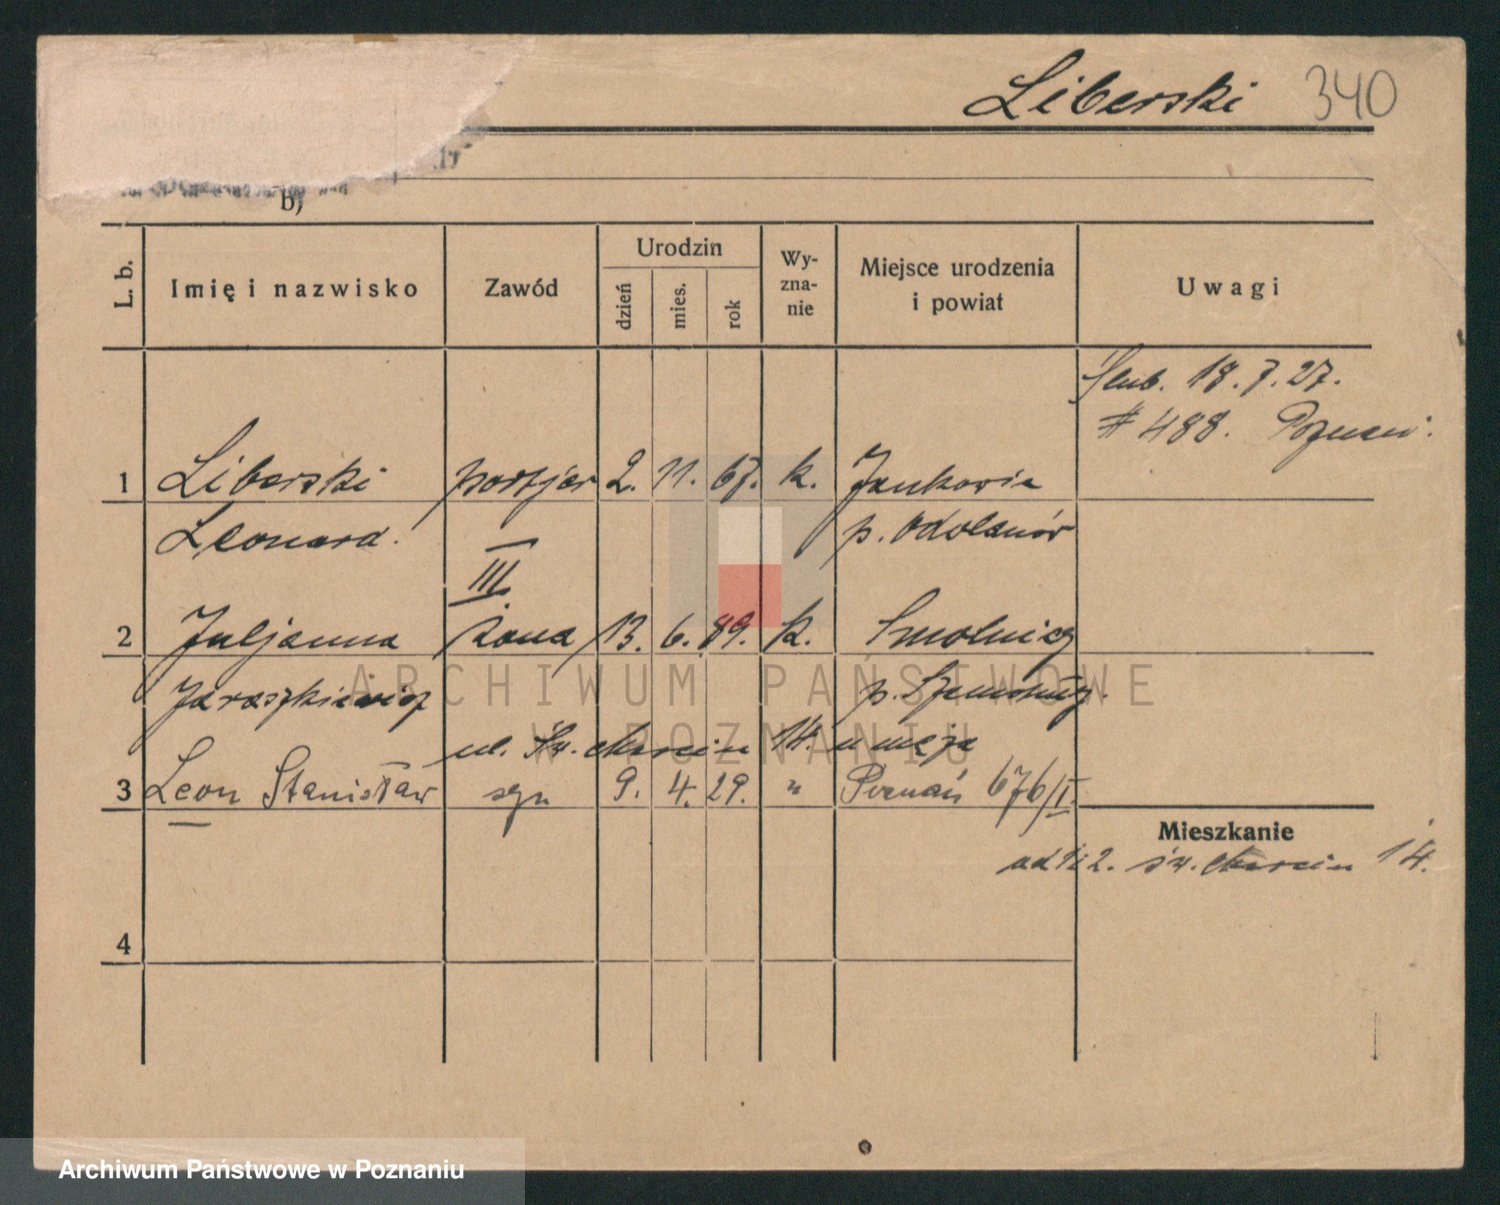 Liberski 340
b)
L. b. Imię i nazwisko Zawód Urodzin dzień mies. rok Wy-zna-nie Miejsce urodzenia i powiat Uwagi
Ślub. 18. 7. 27.
# 488. Poznań.
1 Liberski portjer 2. 11. 67. k. Jankowie
Leonard. p. Odolanów
III.
2 Juljanna żona 13. 6. 89. k. Smolnicy
Jaraszkiewicz p. Szamotuły.
ul. Św. Marcin 14. u męża
3 Leon Stanisław syn 9. 4. 29. " Poznań 676/I
Mieszkanie
św. Marcin 14.
4
ARCHIWUM PAŃSTWOWE
W POZNANIU
Archiwum Państwowe w Poznaniu